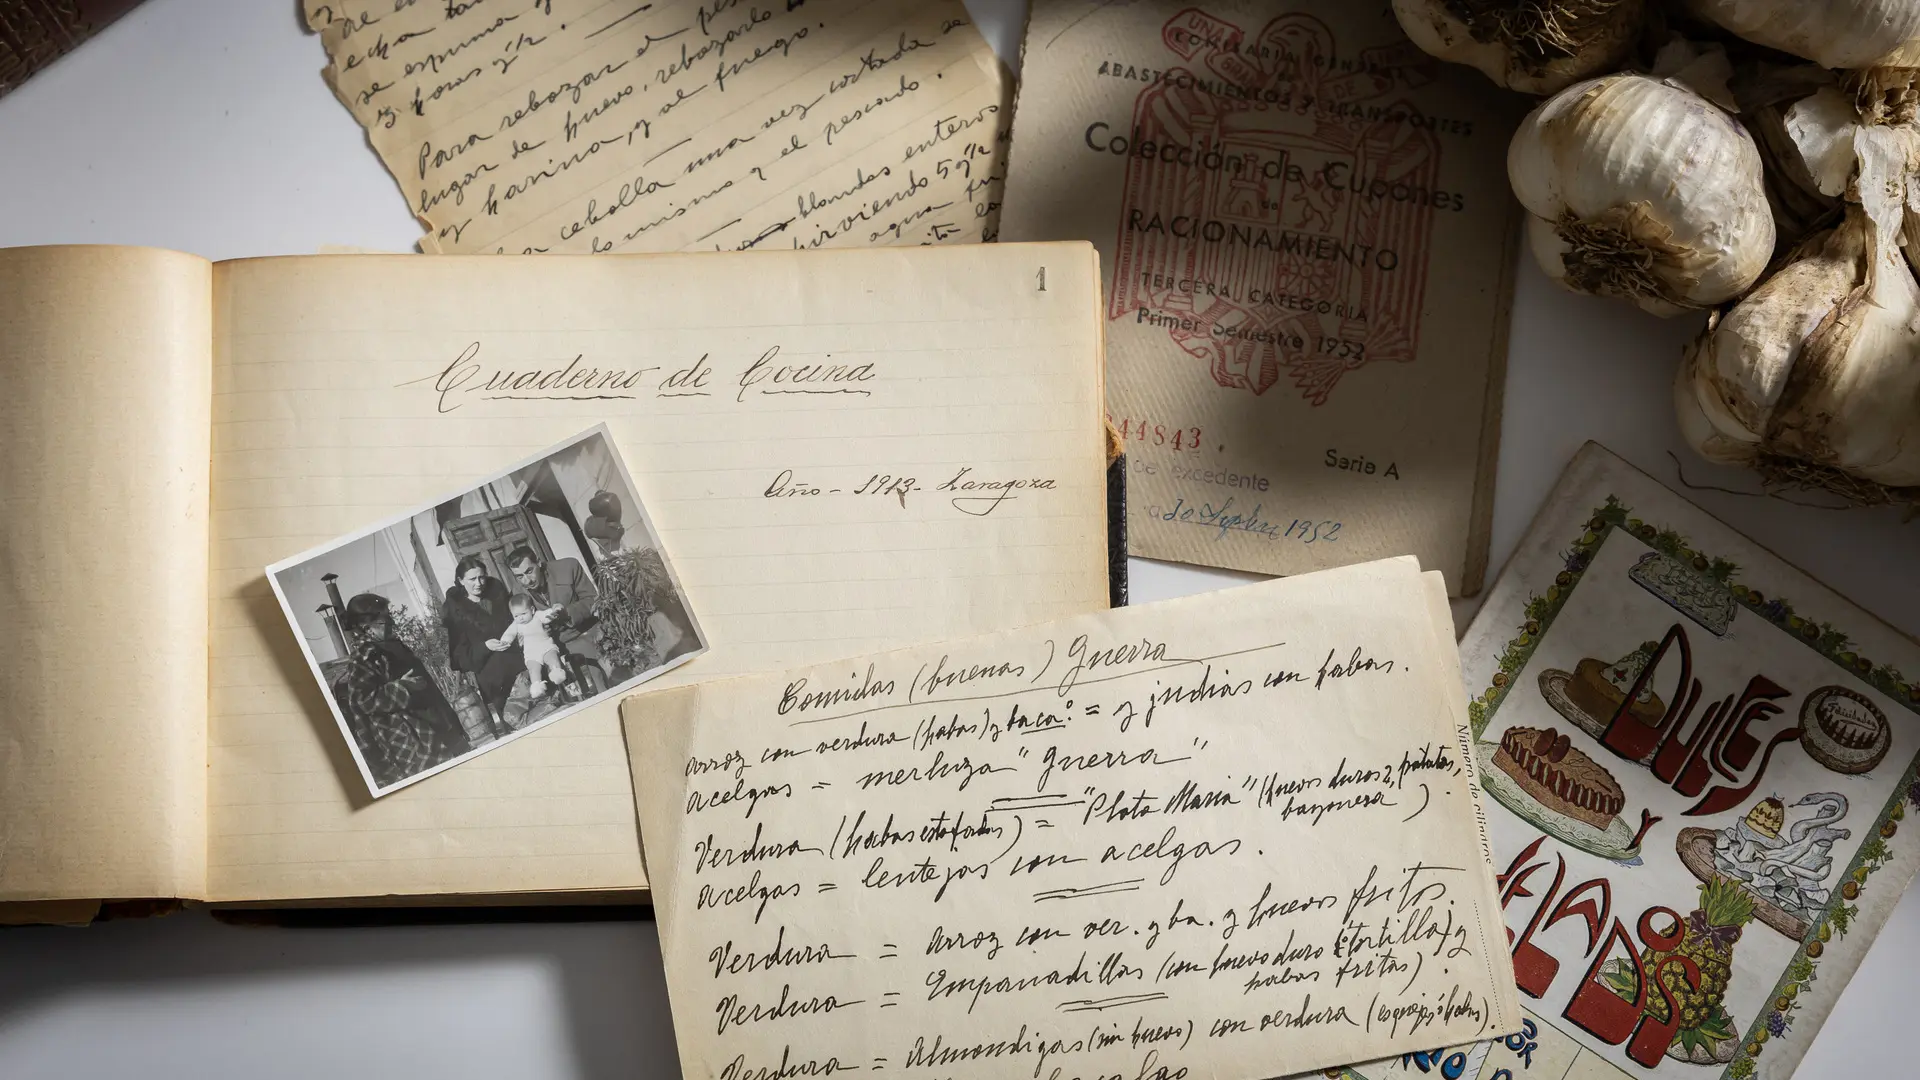 echa
se espuma y
3 horas y ½.
Para rebozar el pes
lugar de huevo, rebozarlo
y harina, y al fuego.
La cebolla una vez cortada se
lo mismo y el pescado.
blandos enteros
hirviendo 5 y ½
agua fri
COMISARIA GENERAL
ABASTECIMIENTOS Y TRANSPORTES
Colección de Cupones
de
RACIONAMIENTO
TERCERA CATEGORIA
Primer Semestre 1952
44843
Serie A
de excedente
a 20 Sepbre 1952
1
Cuaderno de Cocina
Año - 1913 - Zaragoza
Comidas (buenas) Guerra
arroz con verdura (habas) y baca.º = y judias con habas.
acelgas = merluza "guerra"
Verdura (habas estofadas) = "Plato Maria" (huevos duros, patatas,
bayonesa)
acelgas = lentejas con acelgas.
Verdura = arroz con ver. y ba. y huevos fritos.
Verdura = Empanadillas (con huevo duro (tortilla) y
habas fritas).
Verdura = Almondigas (sin huevo) con verdura
Número de
DULCES
Felicidades
HELADOS
POR